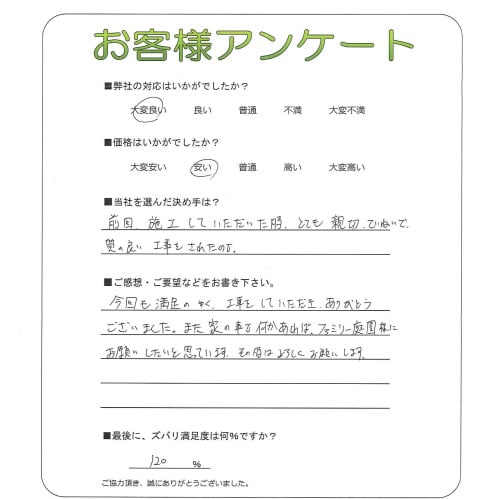 お客様アンケート
■弊社の対応はいかがでしたか？
大変良い 良い 普通 不満 大変不満
■価格はいかがでしたか？
大変安い 安い 普通 高い 大変高い
■当社を選んだ決め手は？
前回、施工していただいた時、とても親切、ていねいで、
質の良い工事をされたので。
■ご感想・ご要望などをお書き下さい。
今回も満足のゆく、工事をしていただき、ありがとう
ございました。また家の事で何かあれば、ファミリー庭園様に
お願いしたいと思っています。その時はよろしくお願いします。
■最後に、ズバリ満足度は何％ですか？
120 ％
ご協力頂き、誠にありがとうございました。